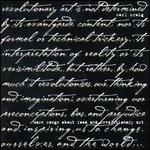 revolutionary art is not determined
carl craig
by its avantgarde content, nor its
formal or technical trickery. its
interpretation of reality or its
verisimilitude, but, rather, by how
much it revolutionizes our thinking
and imagination; overturning our
preconceptions, bias and prejudice
more songs about food and revolutionary art
and inspiring us to change
ourselves and the world...